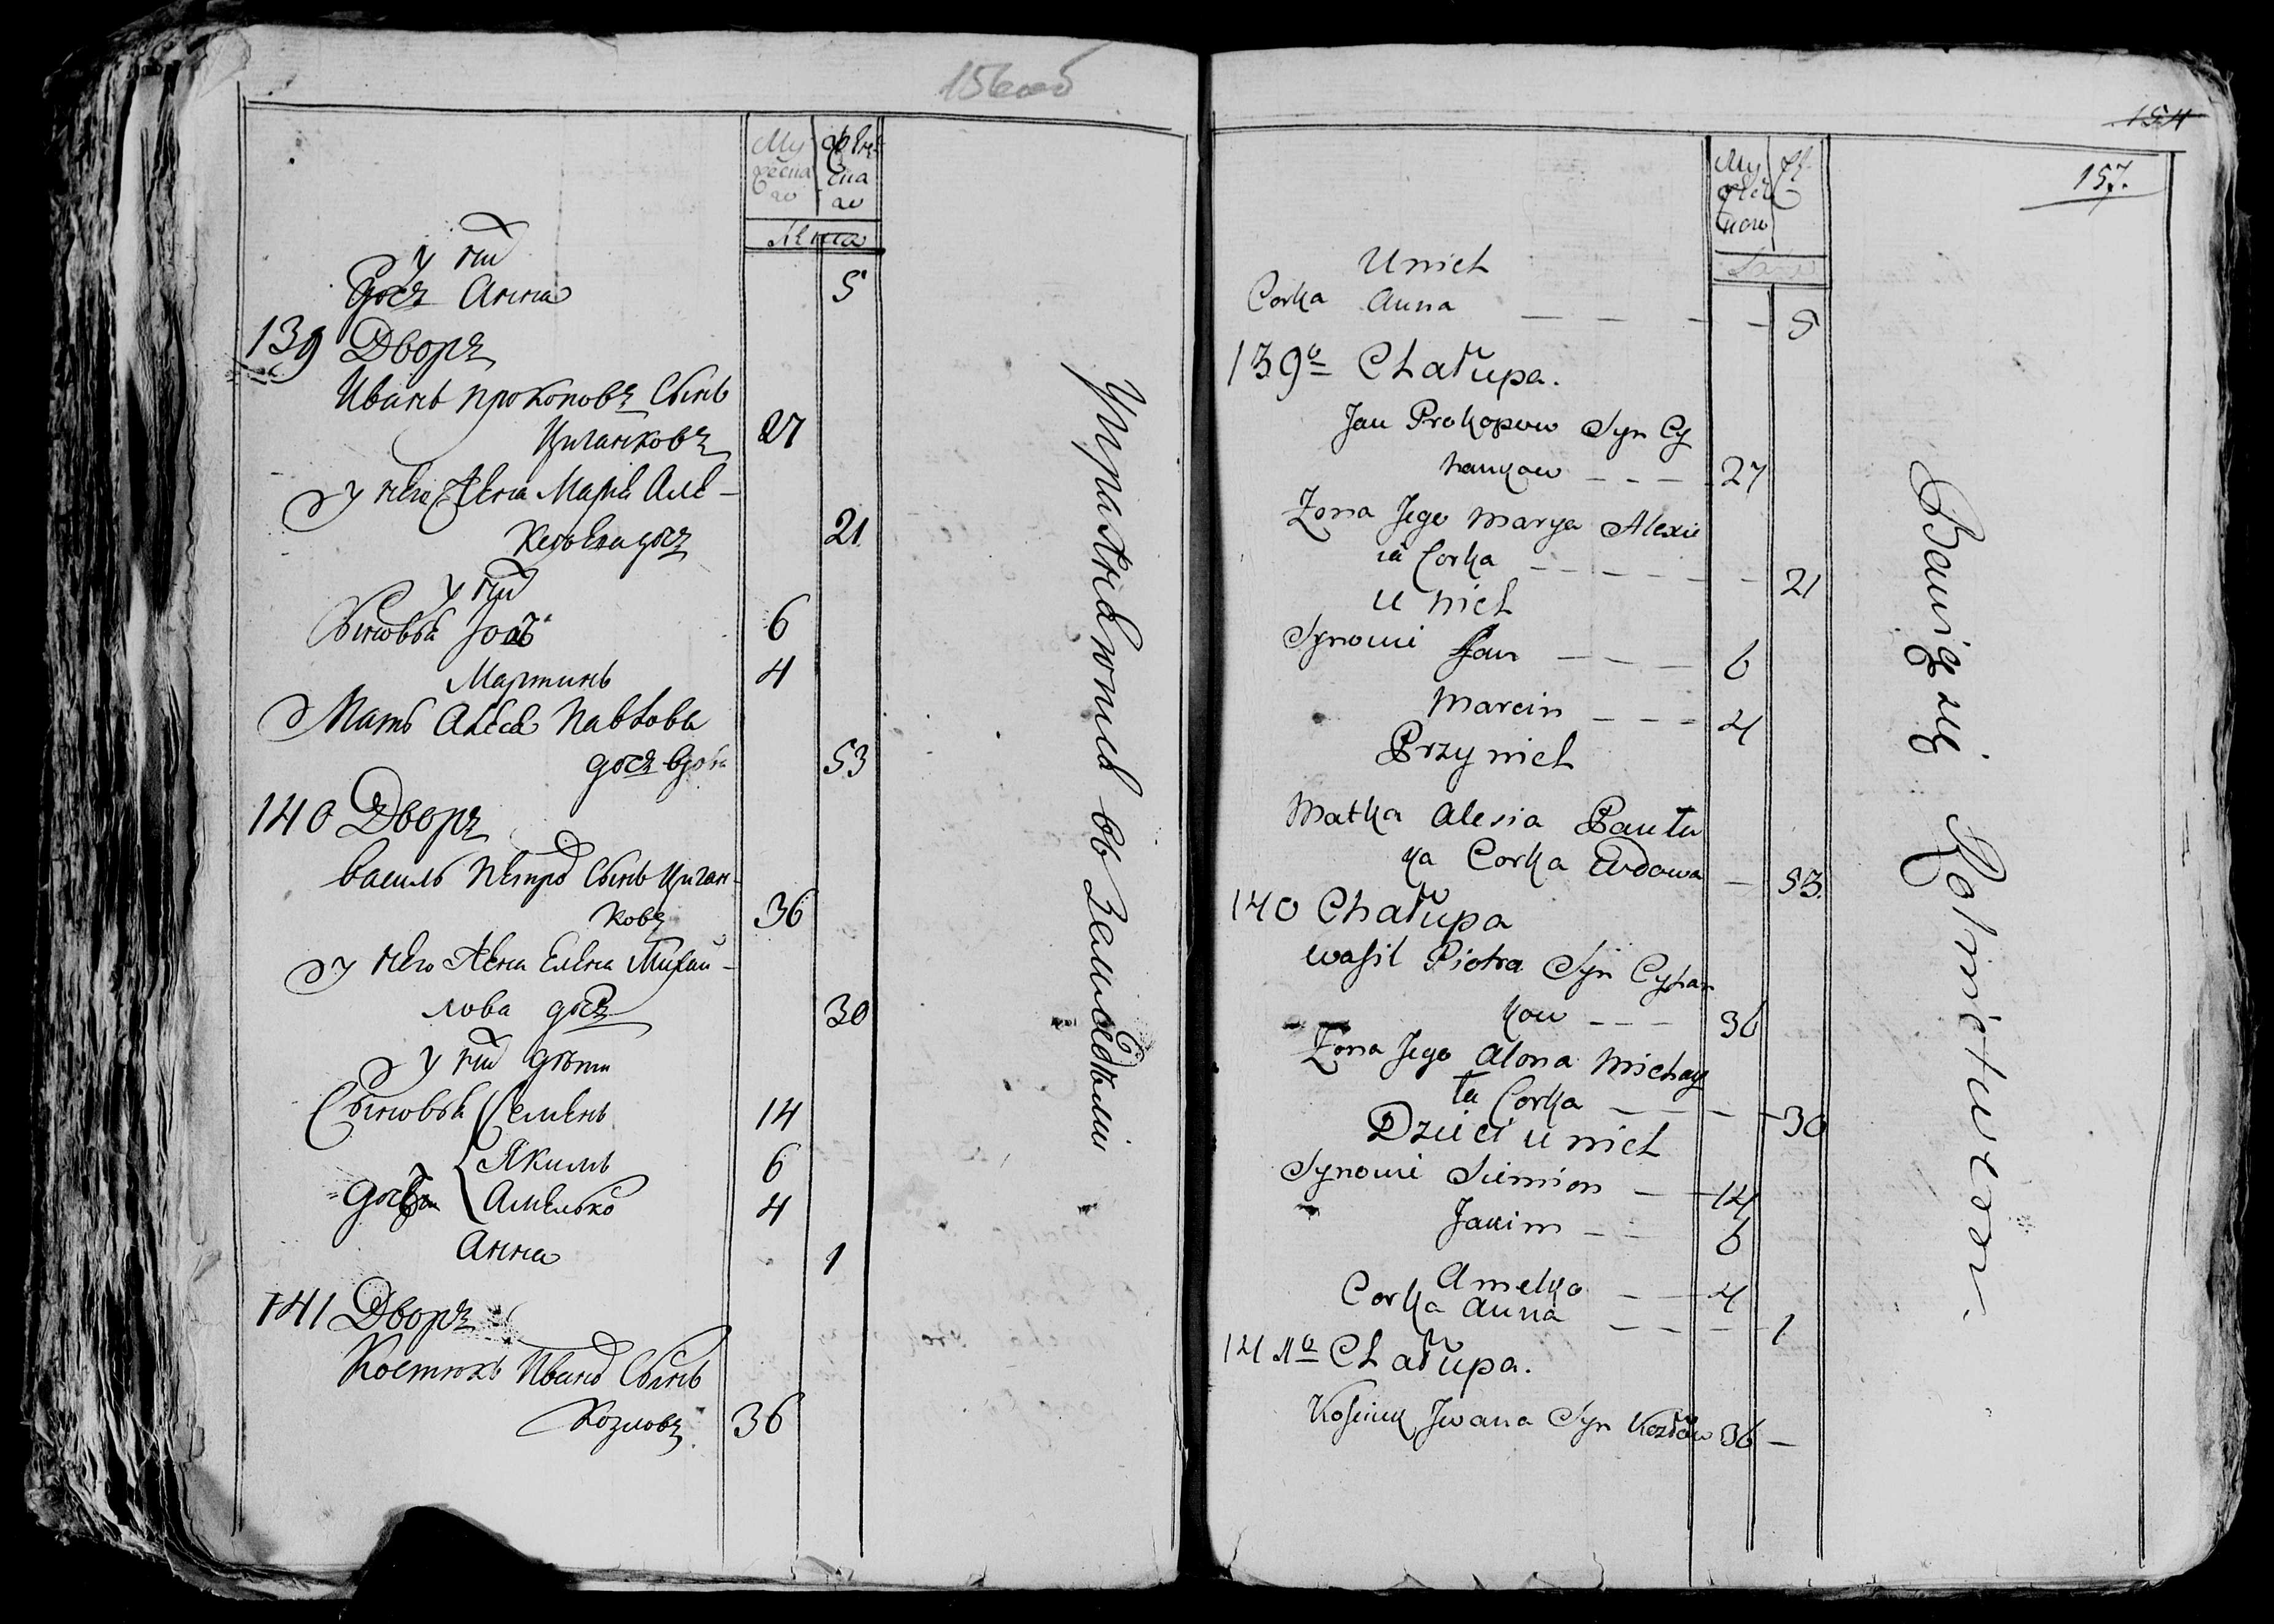 156об
Му
жеска
го
Женс
ска
го
Лета
у них
Дочь Анна 5
139 Дворъ
Иванъ Прокоповъ Сынъ
Циганковъ 27
у него Жена Маря Але-
ксеева дочь 21
у них
Сыновья Іоан 6
Мартинъ 4
Мать Алеся Павлова
дочь вдова 53
140 Дворъ
Василь Петро Сынъ Циган-
ковъ 36
у него Жена Елена Михай-
лова дочь 30
у них дети
Сыновья Семенъ 14
Якимъ 6
Амелько 4
дочь Анна 1
141 Дворъ
Костюкъ Ивано Сынъ
Козловъ 36
Упражняются въ Земледѣліи
154
157.
Му
жес
кого
U nich
Corka Anna 5
139o Chałupa.
Jan Prokopow Syn Cy
hankow 27
Zona Jego Marya Alexie
ia Corka 21
U nich
Synowie Jan 6
Marcin 4
Przy nich
Matka Alesia Pawłu
ka Corka Wdowa 53.
140 Chałupa
Wasil Piotra Syn Cyhan
kow 36
Zona Jego Alona Michay
ła Corka 30
Dzieci u nich
Synowie Siemion 14
Jakim 6
Amelko 4
Corka Anna 1
141o Chałupa.
Kosciuk Jwana Syn Kozłow 36
Bawią się Rolnictwem.